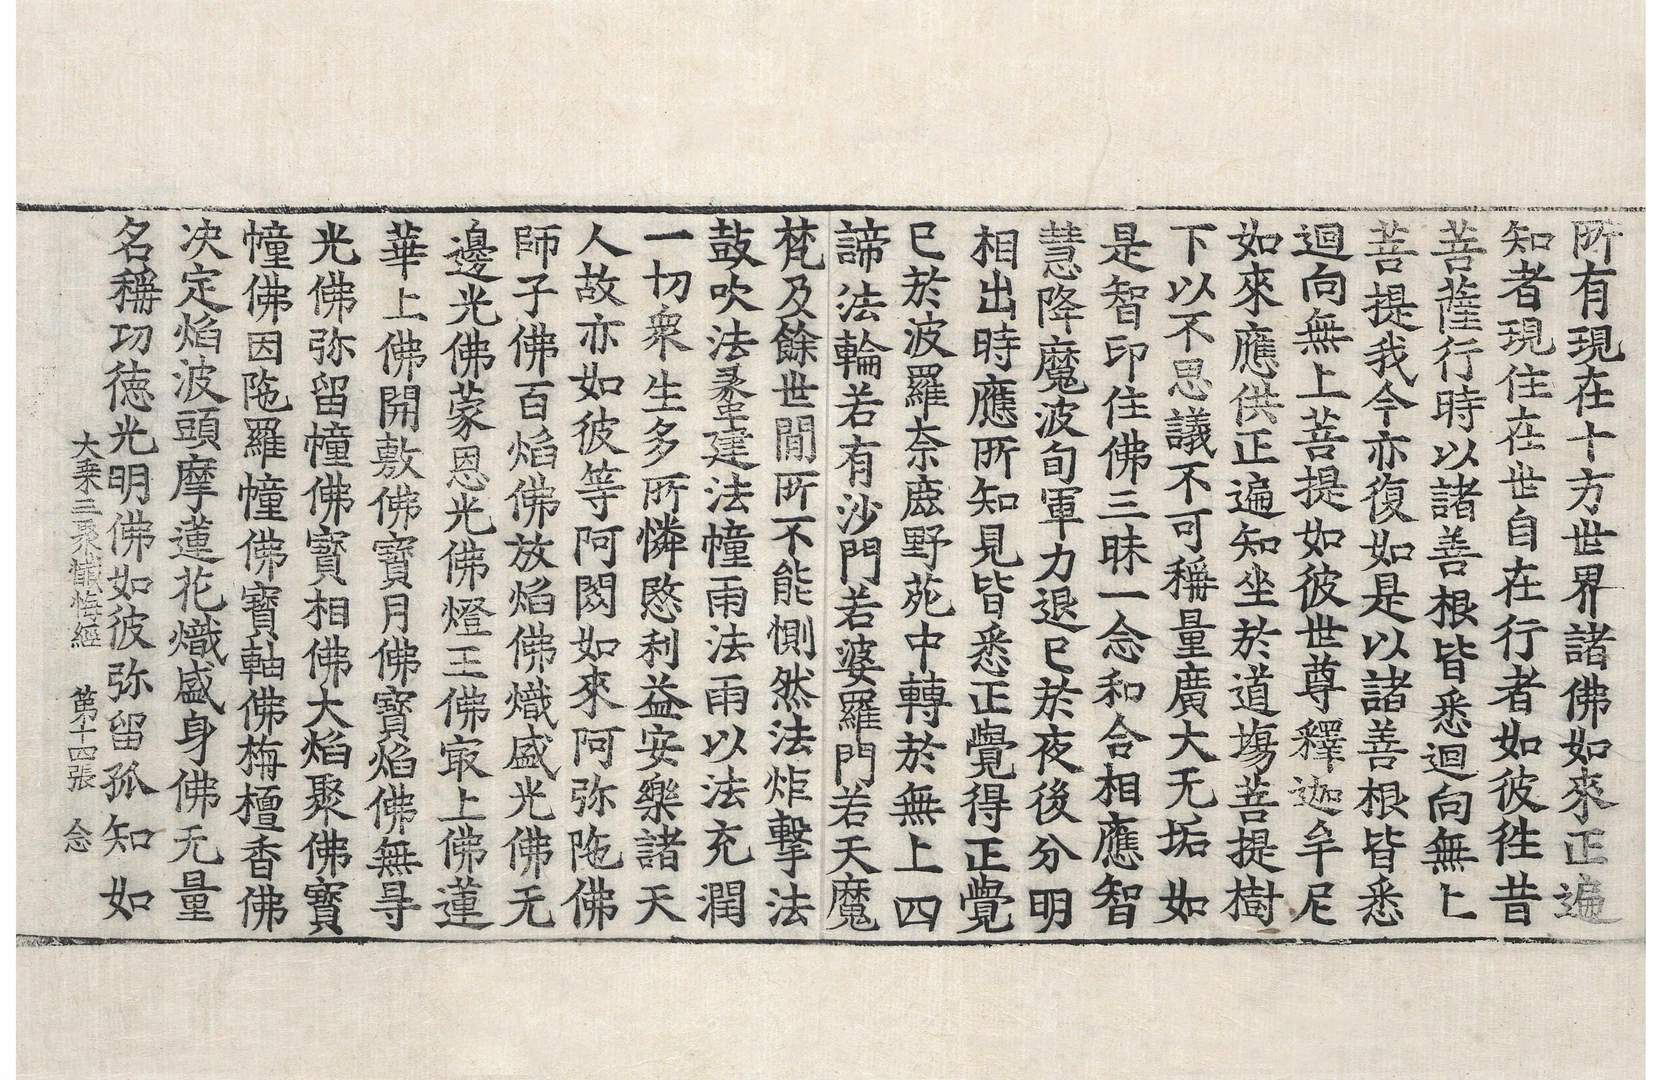 所有現在十方世界諸佛如來正遍
知者現住在世自在行者如彼徃昔
菩薩行時以諸善根皆悉迴向無上
菩提我今亦復如是以諸善根皆悉
迴向無上菩提如彼世尊釋迦牟尼
如來應供正遍知坐於道場菩提樹
下以不思議不可稱量廣大无垢如
是智印住佛三昧一念和合相應智
慧降魔波旬軍力退已於夜後分明
相出時應所知見皆悉正覺得正覺
已於波羅奈鹿野苑中轉於無上四
諦法輪若有沙門若婆羅門若天魔
梵及餘世間所不能惻然法炬擊法
鼓吹法䗍建法幢雨法雨以法充潤
一切衆生多所憐愍利益安樂諸天
人故亦如彼等阿閦如來阿弥陁佛
師子佛百焰佛放焰佛熾盛光佛无
邊光佛蒙恩光佛燈王佛㝡上佛蓮
華上佛開敷佛寶月佛寶焰佛無㝵
光佛弥留幢佛寶相佛大焰聚佛寶
幢佛因陁羅幢佛寶軸佛栴檀香佛
决定焰波頭摩蓮花熾盛身佛无量
名稱功德光明佛如彼弥留孤知如
大乗三聚懺悔經 第十四張 念